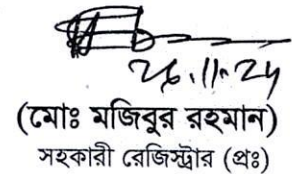 26.11.24
(মোঃ মজিবুর রহমান)
সহকারী রেজিস্ট্রার (প্রঃ)